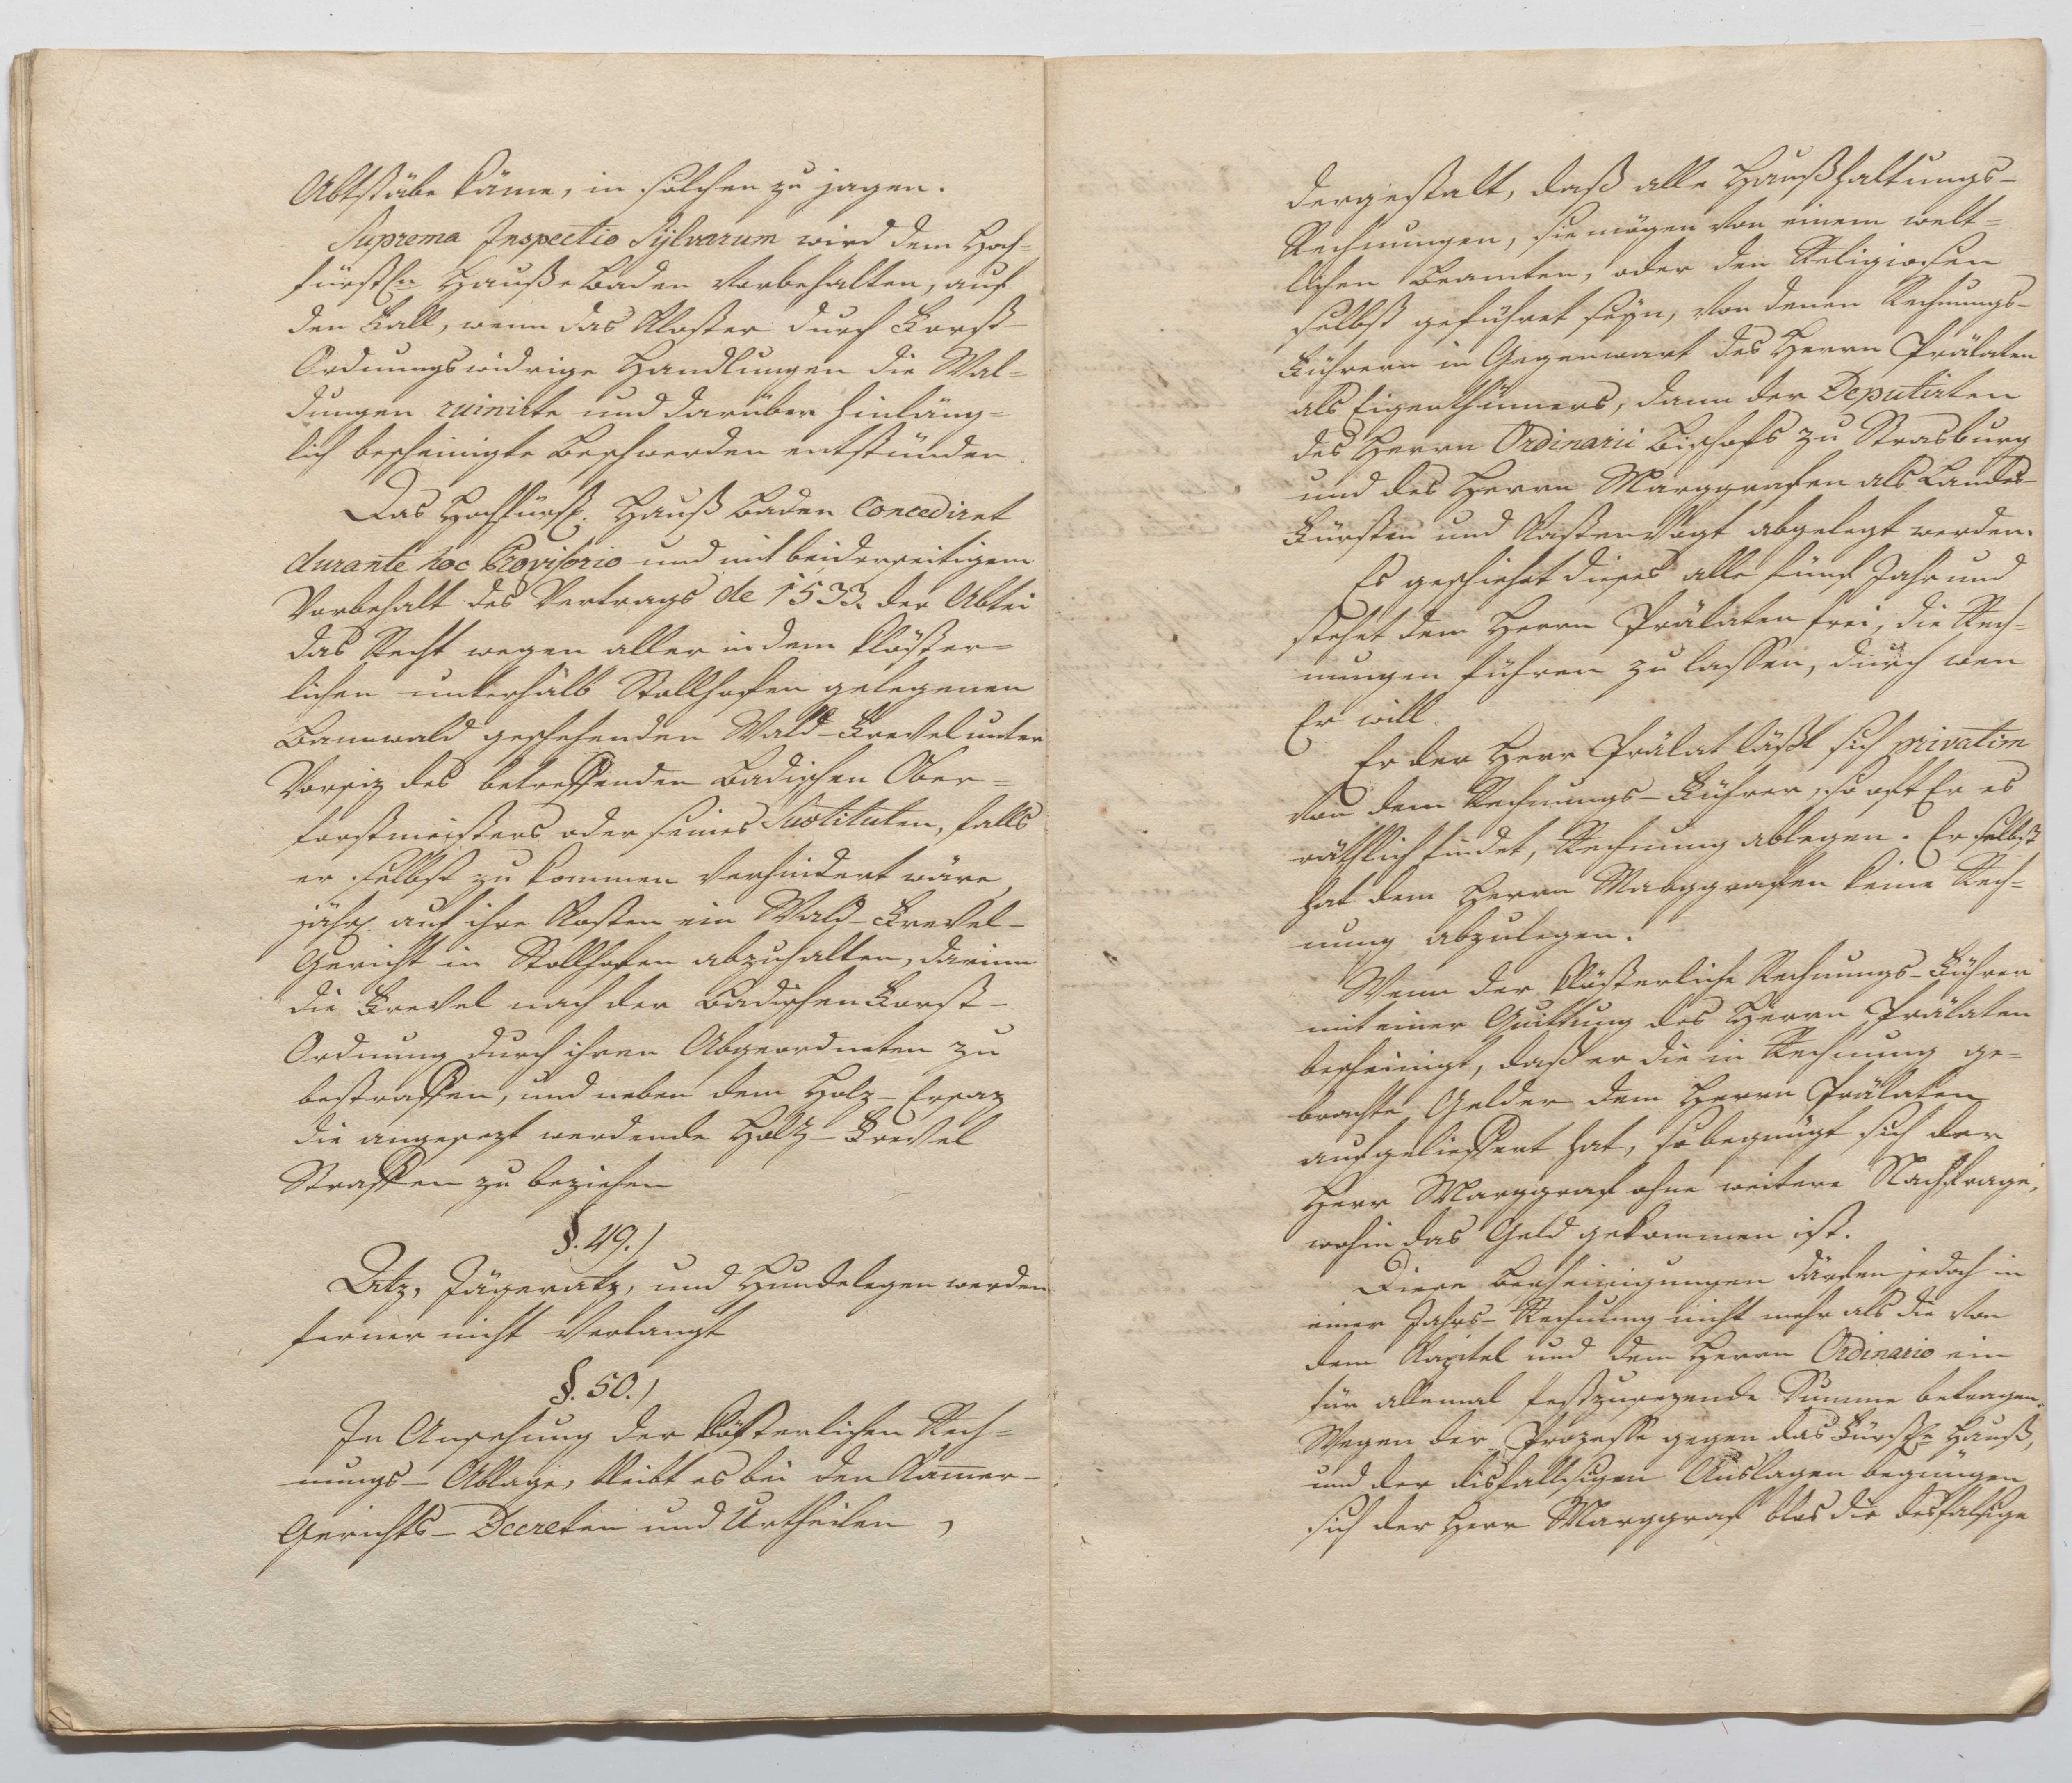 Abtstäbe käme, in solchen zu jagen.
Suprema Inspectio Sylvarum wird dem Hoch=
fürstln. Hauße Baden vorbehalten, auf
den Fall, wenn das Kloster durch Forst-
Ordnungswidrige Handlungen die Wal=
dungen ruinirte und darüber hinläng=
lich bescheinigte Beschwerden entstünden.
Das Hochfürstl. Hauß Baden concediret
durante hoc Provisorio und mit beiderseitigem
Vorbehalt des Vertrags de 1533. der Abtei
das Recht wegen aller in dem klöster=
lichen unterhalb Stollhofen gelegenen
Bannwald geschehenden Wald-Frevel unter
Vorsiz des betreffenden Badischen Ober=
forstmeisters oder seines Sustituten, falls
er selbst zu kommen verhindert wäre,
jährl. auf ihre Kosten ein Wald-Frevel-
Gericht in Stollhofen abzuhalten, darinn
die Frevel nach der Badischen Forst-
Ordnung durch ihren Abgeordneten zu
bestraffen, und neben dem Holz-Ersaz
die angesezt werdende Holz-Frevel
Straffen zu beziehen
§. 49.)
Atz, Jägeratz, und Hundelegen werden
ferner nicht verlangt
§. 50.)
In Ansehung der klösterlichen Rech=
nungs-Ablage, bleibt es bei den Kam̅er-
Gerichts-Decreten und Urtheilen,
dergestalt, daß alle Haußhaltungs-
Rechnungen, sie mögen von einem welt=
lichen Beamten, oder den Religiosen
selbst geführet seyn, von denen Rechnungs-
Führern in Gegenwart des Herrn Prälaten
als Eigenthümers, dann der Deputirten
des Herrn Ordinarii Bischofs zu Strasburg
und des Herrn Marggrafen als Landes-
Fürsten und Kastenvogt abgelegt werden.
Es geschiehet dieses alle fünf Jahr und
stehet dem Herrn Prälaten frei, die Rech=
nungen führen zu lassen, durch wen
Er will.
Er der Herr Prälat läßt sich privatim
von dem Rechnungs-Führer, so oft Er es
räthlich findet, Rechnung ablegen. Er selbst
hat dem Herrn Marggrafen keine Rech=
nung abzulegen.
Wenn der klösterliche Rechnungs-Führer
mit einer Quittung des Herrn Prälaten
bescheinigt, daß er die in Rechnung ge=
brachte Gelder dem Herrn Prälaten
aufgeliefert hat, so begnügt sich der
Herr Marggraf ohne weitere Nachfrage,
wohin das Geld gekommen ist.
Diese Bescheinigungen dürfen jedoch in
einer Jahrs-Rechnung nicht mehr als die von
dem Kapitel und dem Herrn Ordinario ein
für allemal festzusezende Summe betragen.
Wegen der Prozesse gegen das Fürstle Hauß,
und der disfallsigen Auslagen begnügen
sich der Herr Marggraf blos die desfalsige